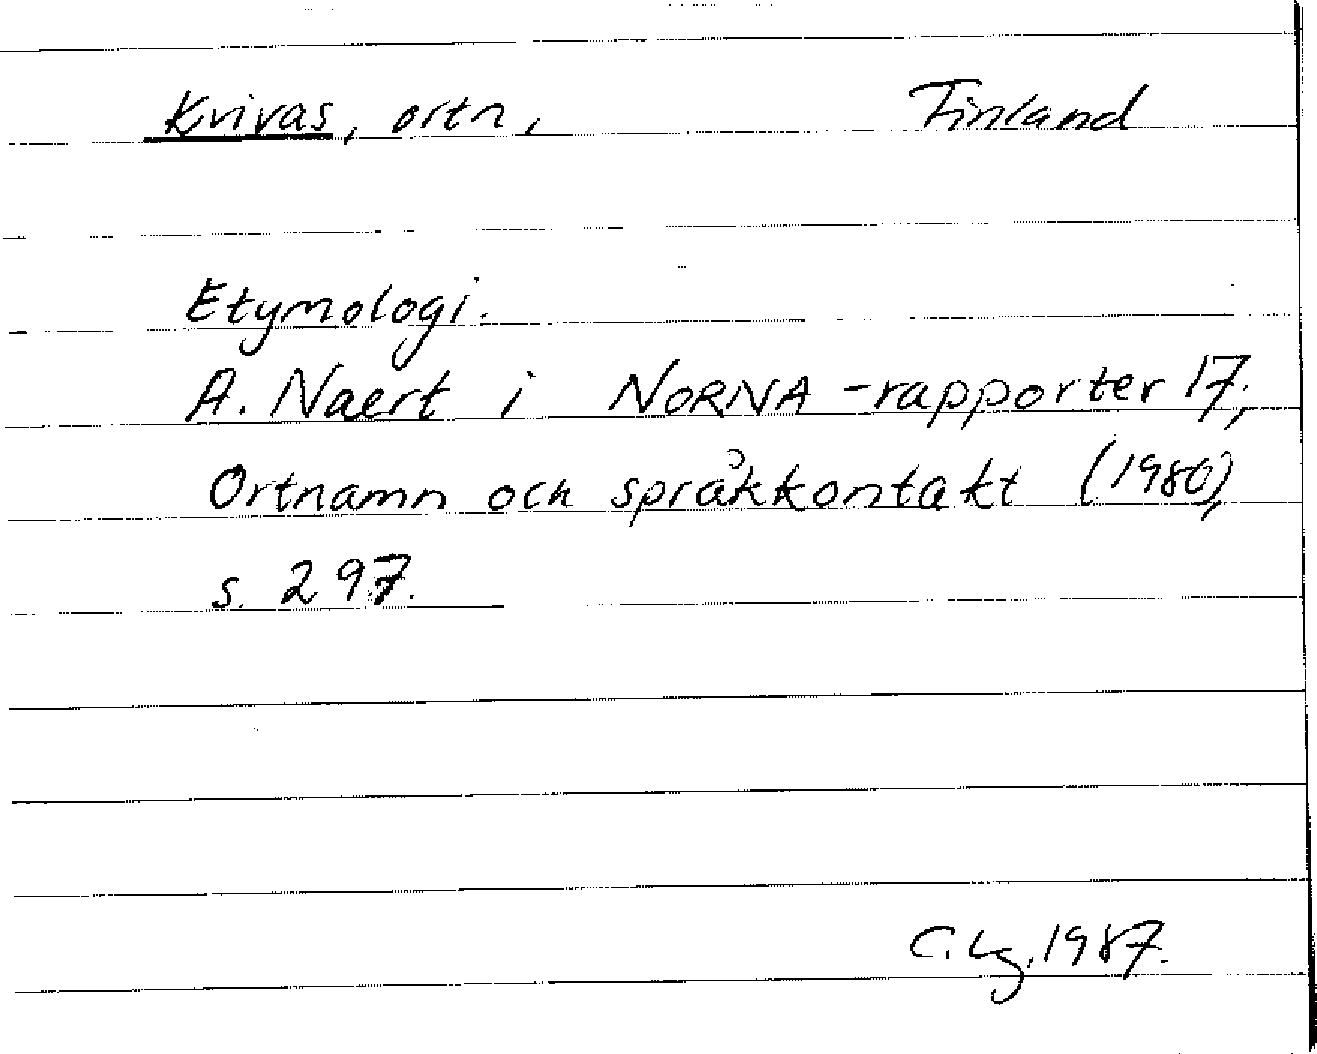 Kvivas, ortn, Finland
Etymologi.
A. Naert i NORNA-rapporter 17;
Ortnamn och språkkontakt (1980),
s. 297.
C. Lg. 1987.